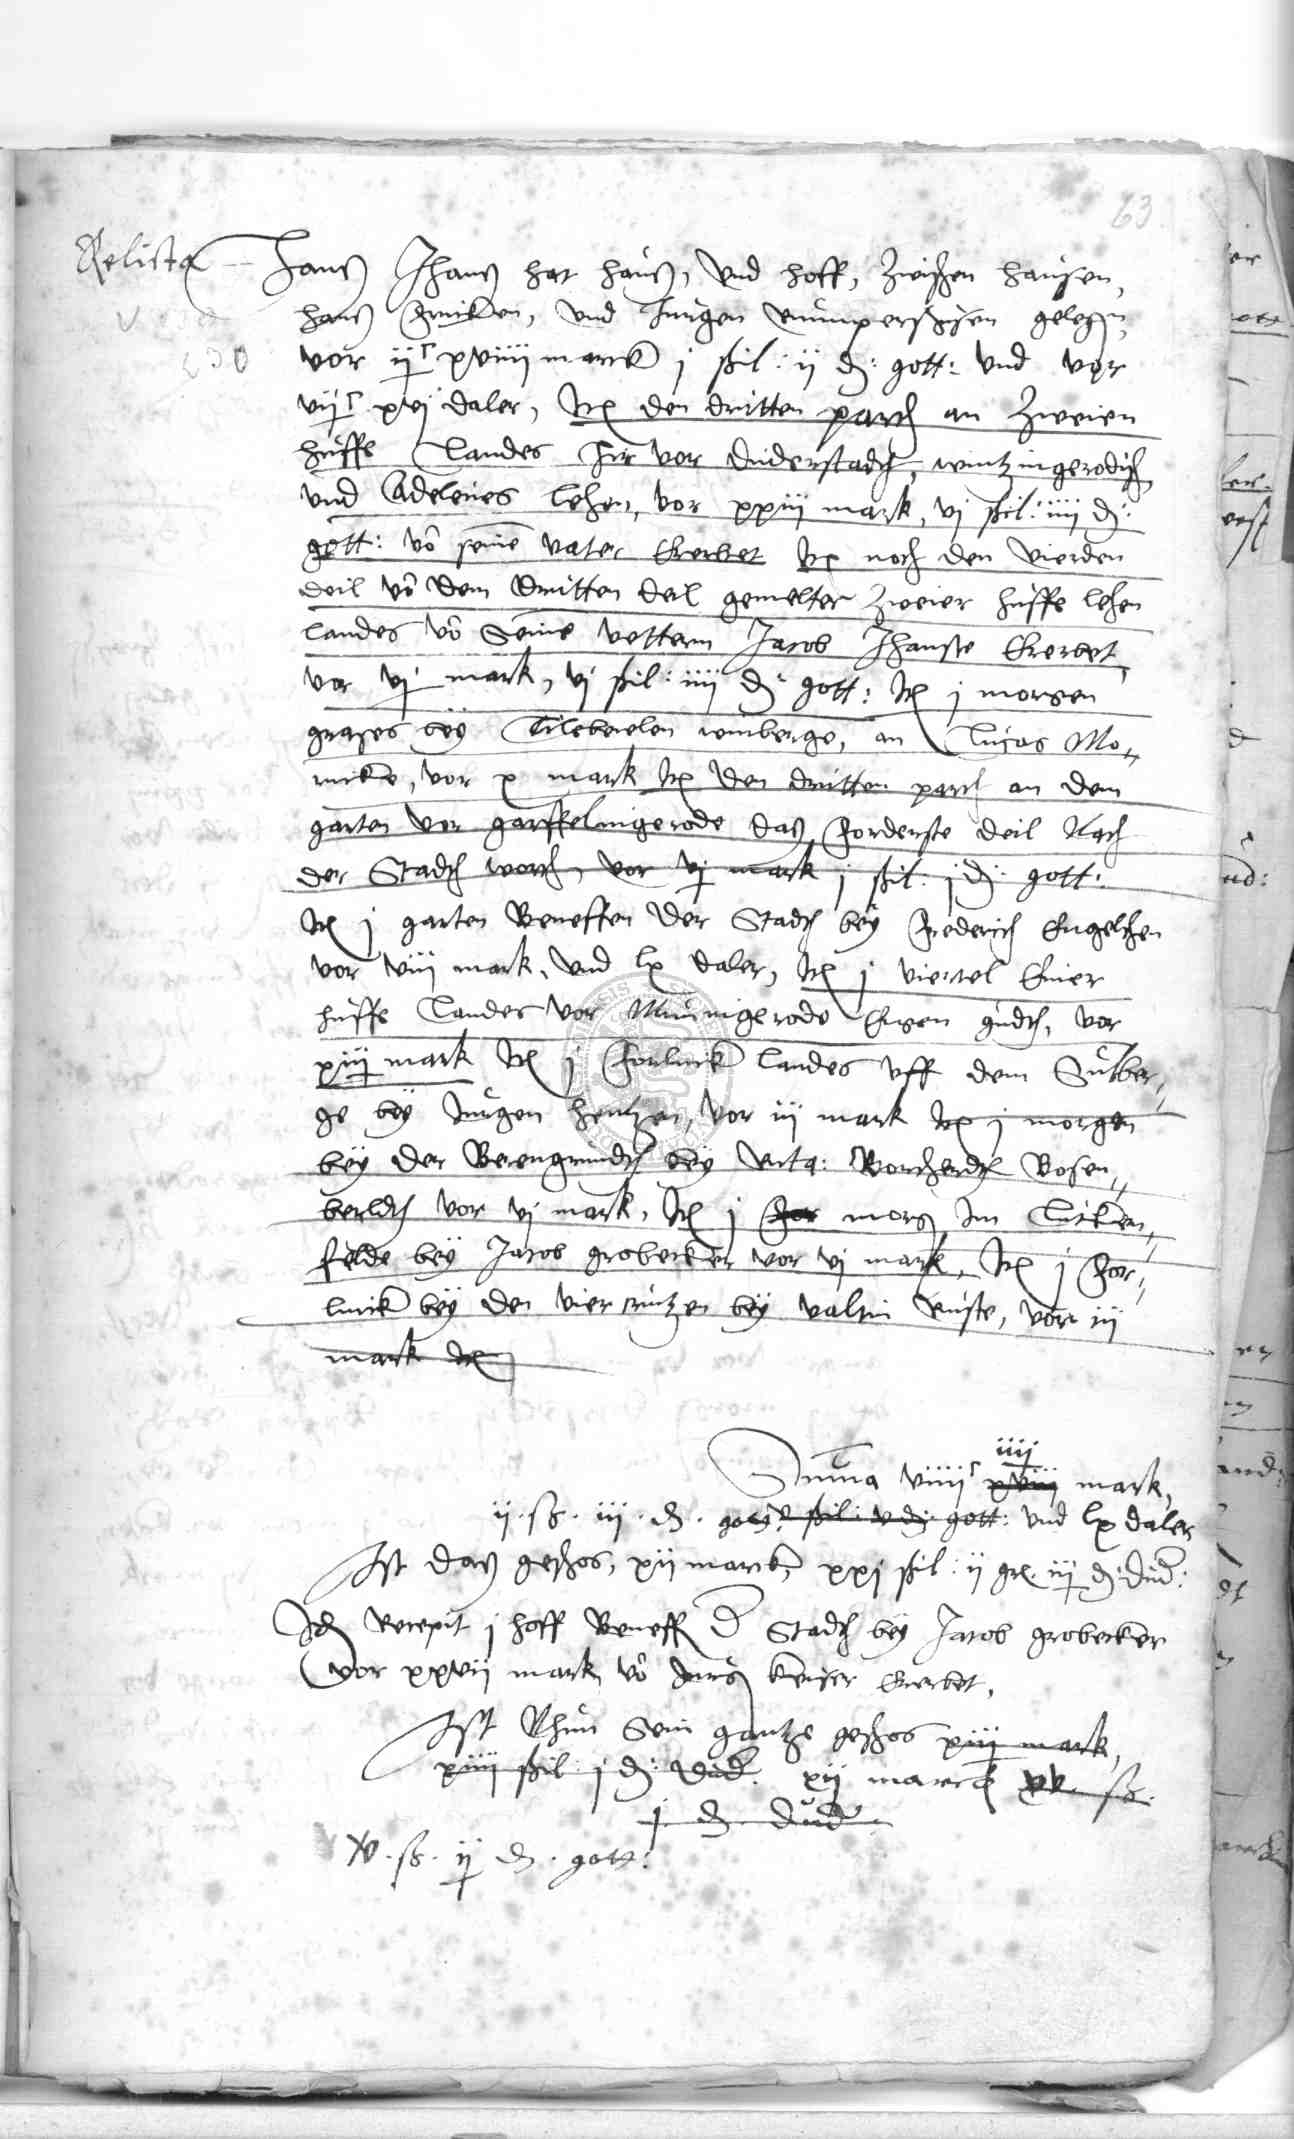 63
Relicta Hans Jhans hat hauß, und hoff, zwischen hausen,
hans und Jurgen gelegen,
vor ij c xviiij marck j ßil: ij d: gott: und vor
vij c xvj daler, Itē den dritten parth an zweien
huffe Landes hir vor duderstadth, wintzingerodisch
und Adeleues lehen, vor xxiij mark, vj ßil: iiij d:
gott: vō seine vater Ererbet Itē noch den vierden
deil vō dem dritten deil gemelter zweier huffe lehen
landes vō Seine vettern Jacob Ererbet
vor vj mark, vj ßil: iiij d: gott: Itē j morgen
grases bey winberge, an Lucas Mo-,
vor x mark Itē den dritten parth an dem
garten vor garffelingerode das forderste deil Nach
der Stadth worth, vor vj mark j ßil: j d: gott:
Itē j garten Beneffen der Stadth bey frederich Engelhen
vor viij mark, und lx daler, Itē j viertel Einer
huffe Landes vor Minnigerode Eigen gudth, vor
xiij mark Itē j forlinck landes uff dem Sulber-
ge bey Jurgen hentzen, vor iij mark Itē j morgen
bey der Berengrundth bey Borcherdth Rosen-
berldth vor vj mark, Itē j for morg Im Lutken-
felde bey Jacob grobecker vor vj mark, Itē j for-
linck bey den vier crutzen bey valtin Ruste, vor iij
mark Itē
iiij
Summa viiij c xviij mark,
ij. ß. iij. d. gott: ßil: v d: gott: und lx daler
Ist das geschos, xij marck, xxj ßil: ij gr. iij d: dud:
Id Recepit j hoff Beneff d Stadth bey Jacob grobecker
vor xxvij mark vō Jurg keiser Ererbet,
Ist Nhun Sein gantze geschos xiij mark,
xiiij ßil: j d: dud. xij marck xv. ß.
j. d. dud.
xv. ß. ij d. gott: